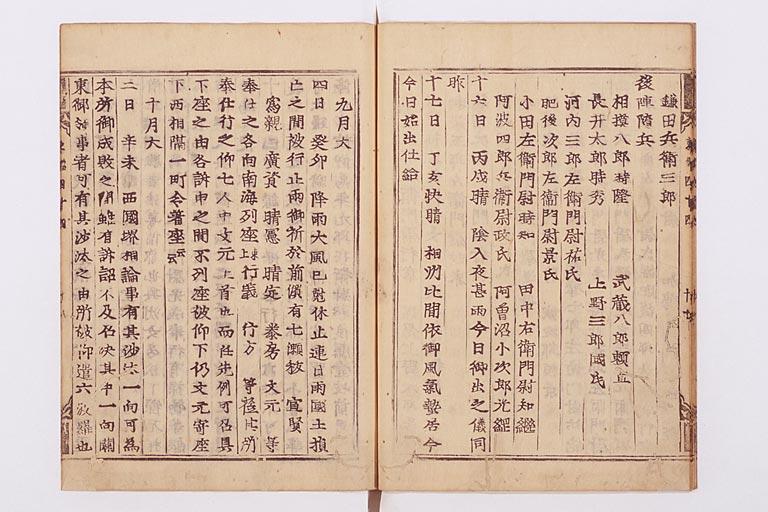 鎌田兵衛三郎
後陣隨兵
相摸八郎時隆 武蔵八郎頼直
長井太郎時秀 上野三郎國氏
河内三郎左衛門尉祐氏
肥後次郎左衛門尉景氏
小田左衛門尉時知 田中右衛門尉知継
阿波四郎兵衛尉政氏 阿曽沼小次郎光綱
十六日 丙戌晴 陰入夜甚雨今日御出之儀同
昨
十七日 丁亥快晴 相州比間依御風氣蟄居今
今日始出仕給
九月大
四日 癸卯御降雨大風已尅休止連日雨國土損
亡之間被行止雨御祈於前濱有七瀬秡 宣賢
為親 廣資 晴憲 晴宗 泰房 文元 等
奉仕之各向南海列座 行義 行方 等
奉仕行之仰七人中文元上首也而任先例可召具
下座之由各訴申之間不列座被仰下仍文元寄座
下西相隔一町令着座云云
十月大
二日 辛未 西國堺相論事有其沙汰一向可為
本所御成敗之間雖有訴詔不及召决其中一向關
東御 事者可有其沙汰之由所被仰遣六波羅也